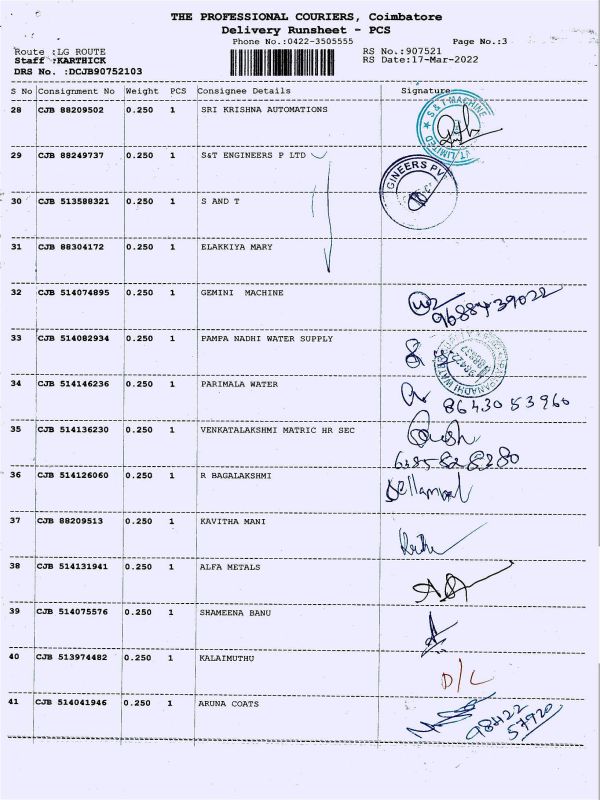 THE PROFESSIONAL COURIERS, Coimbatore
Delivery Runsheet - PCS
Phone No.:0422-3505555 Page No.:3
Route :LG ROUTE RS No.:907521
Staff :KARTHICK RS Date:17-Mar-2022
DRS No. :DCJB90752103
S No Consignment No Weight PCS Consignee Details Signature
28 CJB 88209502 0.250 1 SRI KRISHNA AUTOMATIONS
S & T MACHINE
29 CJB 88249737 0.250 1 S&T ENGINEERS P LTD
30 CJB 513588321 0.250 1 S AND T
31 CJB 88304172 0.250 1 ELAKKIYA MARY
32 CJB 514074895 0.250 1 GEMINI MACHINE
33 CJB 514082934 0.250 1 PAMPA NADHI WATER SUPPLY
34 CJB 514146236 0.250 1 PARIMALA WATER
86430 53960
35 CJB 514136230 0.250 1 VENKATALAKSHMI MATRIC HR SEC
36 CJB 514126060 0.250 1 R BAGALAKSHMI
37 CJB 88209513 0.250 1 KAVITHA MANI
38 CJB 514131941 0.250 1 ALFA METALS
39 CJB 514075576 0.250 1 SHAMEENA BANU
40 CJB 513974482 0.250 1 KALAIMUTHU
D/L
41 CJB 514041946 0.250 1 ARUNA COATS
98422
57920